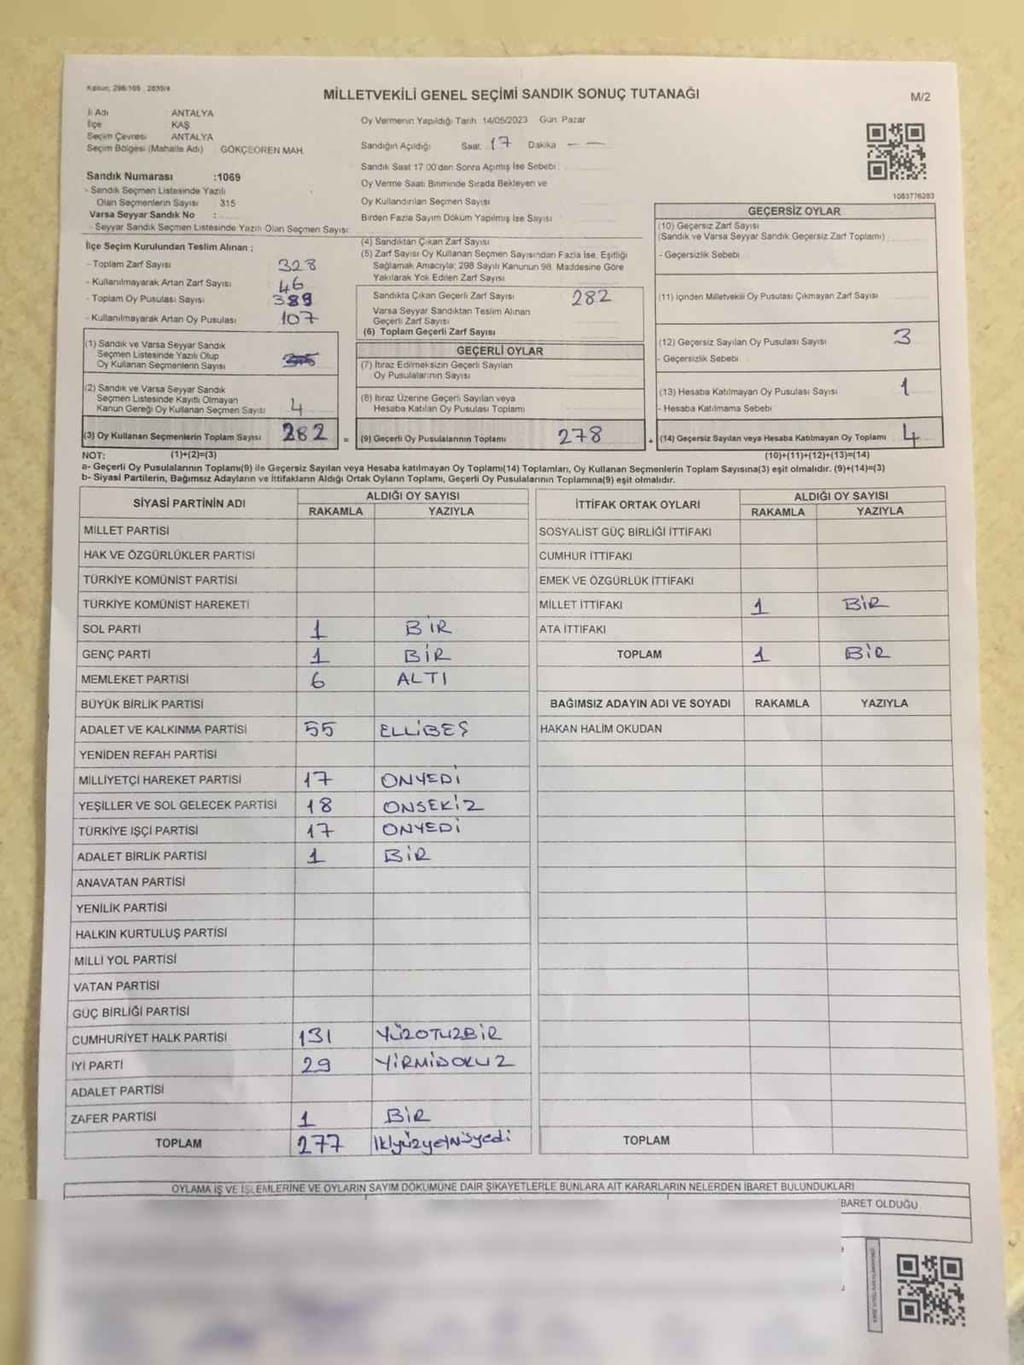 Kanun; 298/105 , 2839/4
MİLLETVEKİLİ GENEL SEÇİMİ SANDIK SONUÇ TUTANAĞI
M/2
İl Adı ANTALYA
İlçe KAŞ
Seçim Çevresi ANTALYA
Seçim Bölgesi (Mahalle Adı) GÖKÇEÖREN MAH.
Oy Vermenin Yapıldığı Tarih 14/05/2023 Gün: Pazar
Sandığın Açıldığı Saat 17 Dakika — —
Sandık Saat 17:00'den Sonra Açılmış İse Sebebi
Oy Verme Saati Bitiminde Sırada Bekleyen ve
Oy Kullandırılan Seçmen Sayısı
Birden Fazla Sayım Döküm Yapılmış İse Sayısı
1083776283
Sandık Numarası :1069
- Sandık Seçmen Listesinde Yazılı
Olan Seçmenlerin Sayısı 315
Varsa Seyyar Sandık No :
- Seyyar Sandık Seçmen Listesinde Yazılı Olan Seçmen Sayısı:
İlçe Seçim Kurulundan Teslim Alınan :
- Toplam Zarf Sayısı 328
- Kullanılmayarak Artan Zarf Sayısı 46
- Toplam Oy Pusulası Sayısı 389
- Kullanılmayarak Artan Oy Pusulası 107
(1) Sandık ve Varsa Seyyar Sandık
Seçmen Listesinde Yazılı Olup
Oy Kullanan Seçmenlerin Sayısı
(2) Sandık ve Varsa Seyyar Sandık
Seçmen Listesinde Kayıtlı Olmayan
Kanun Gereği Oy Kullanan Seçmen Sayısı 4
(3) Oy Kullanan Seçmenlerin Toplam Sayısı 282 =
(4) Sandıktan Çıkan Zarf Sayısı
(5) Zarf Sayısı Oy Kullanan Seçmen Sayısından Fazla İse, Eşitliği
Sağlamak Amacıyla; 298 Sayılı Kanunun 98. Maddesine Göre
Yakılarak Yok Edilen Zarf Sayısı
Sandıkta Çıkan Geçerli Zarf Sayısı 282
Varsa Seyyar Sandıktan Teslim Alınan
Geçerli Zarf Sayısı
(6) Toplam Geçerli Zarf Sayısı
GEÇERLİ OYLAR
(7) İtiraz Edilmeksizin Geçerli Sayılan
Oy Pusulalarının Sayısı
(8) İtiraz Üzerine Geçerli Sayılan veya
Hesaba Katılan Oy Pusulası Toplamı
(9) Geçerli Oy Pusulalarının Toplamı 278 +
GEÇERSİZ OYLAR
(10) Geçersiz Zarf Sayısı
(Sandık ve Varsa Seyyar Sandık Geçersiz Zarf Toplamı)
- Geçersizlik Sebebi
(11) İçinden Milletvekili Oy Pusulası Çıkmayan Zarf Sayısı
(12) Geçersiz Sayılan Oy Pusulası Sayısı 3
- Geçersizlik Sebebi
(13) Hesaba Katılmayan Oy Pusulası Sayısı 1
- Hesaba Katılmama Sebebi
(14) Geçersiz Sayılan veya Hesaba Katılmayan Oy Toplamı 4
NOT: (1)+(2)=(3) (10)+(11)+(12)+(13)=(14)
a- Geçerli Oy Pusulalarının Toplamı(9) ile Geçersiz Sayılan veya Hesaba katılmayan Oy Toplamı(14) Toplamları, Oy Kullanan Seçmenlerin Toplam Sayısına(3) eşit olmalıdır. (9)+(14)=(3)
b- Siyasi Partilerin, Bağımsız Adayların ve İttifakların Aldığı Ortak Oyların Toplamı, Geçerli Oy Pusulalarının Toplamına(9) eşit olmalıdır.
SİYASİ PARTİNİN ADI ALDIĞI OY SAYISI
RAKAMLA YAZIYLA
MİLLET PARTİSİ
HAK VE ÖZGÜRLÜKLER PARTİSİ
TÜRKİYE KOMÜNİST PARTİSİ
TÜRKİYE KOMÜNİST HAREKETİ
SOL PARTİ 1 BİR
GENÇ PARTİ 1 BİR
MEMLEKET PARTİSİ 6 ALTI
BÜYÜK BİRLİK PARTİSİ
ADALET VE KALKINMA PARTİSİ 55 ELLİBEŞ
YENİDEN REFAH PARTİSİ
MİLLİYETÇİ HAREKET PARTİSİ 17 ONYEDİ
YEŞİLLER VE SOL GELECEK PARTİSİ 18 ONSEKİZ
TÜRKİYE İŞÇİ PARTİSİ 17 ONYEDİ
ADALET BİRLİK PARTİSİ 1 BİR
ANAVATAN PARTİSİ
YENİLİK PARTİSİ
HALKIN KURTULUŞ PARTİSİ
MİLLİ YOL PARTİSİ
VATAN PARTİSİ
GÜÇ BİRLİĞİ PARTİSİ
CUMHURİYET HALK PARTİSİ 131 YÜZOTUZBİR
İYİ PARTİ 29 YİRMİDOKUZ
ADALET PARTİSİ
ZAFER PARTİSİ 1 BİR
TOPLAM 277 İkiyüzyetmişyedi
İTTİFAK ORTAK OYLARI ALDIĞI OY SAYISI
RAKAMLA YAZIYLA
SOSYALİST GÜÇ BİRLİĞİ İTTİFAKI
CUMHUR İTTİFAKI
EMEK VE ÖZGÜRLÜK İTTİFAKI
MİLLET İTTİFAKI 1 BİR
ATA İTTİFAKI
TOPLAM 1 BİR
BAĞIMSIZ ADAYIN ADI VE SOYADI RAKAMLA YAZIYLA
HAKAN HALİM OKUDAN
TOPLAM
OYLAMA İŞ VE İŞLEMLERİNE VE OYLARIN SAYIM DÖKÜMÜNE DAİR ŞİKAYETLERLE BUNLARA AİT KARARLARIN NELERDEN İBARET BULUNDUKLARI
BARET OLDUĞU